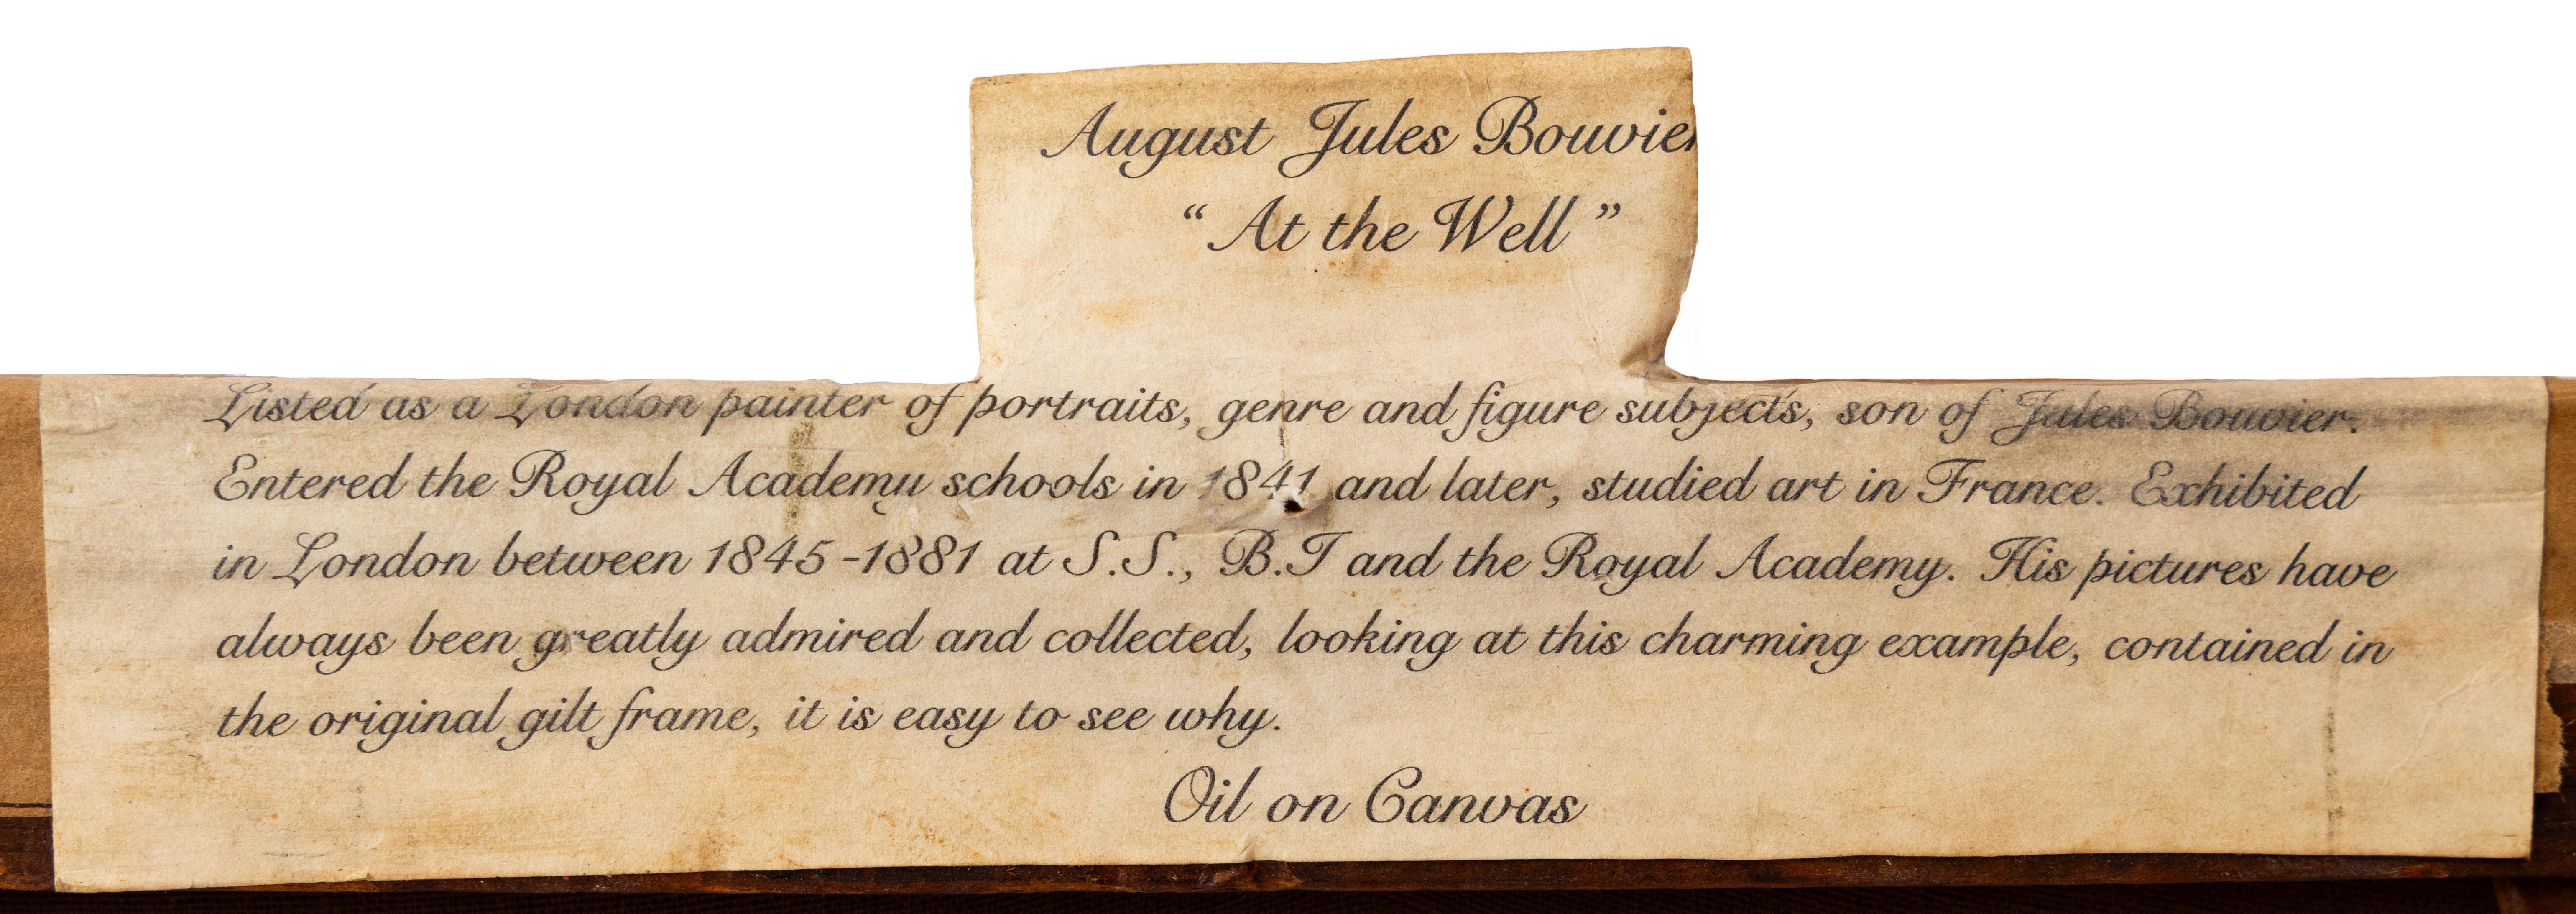 August Jules Bouvier
“ At the Well ”
Listed as a London painter of portraits, genre and figure subjects, son of Jules Bouvier.
Entered the Royal Academy schools in 1841 and later, studied art in France. Exhibited
in London between 1845-1881 at S.S., B.I and the Royal Academy. His pictures have
always been greatly admired and collected, looking at this charming example, contained in
the original gilt frame, it is easy to see why.
Oil on Canvas